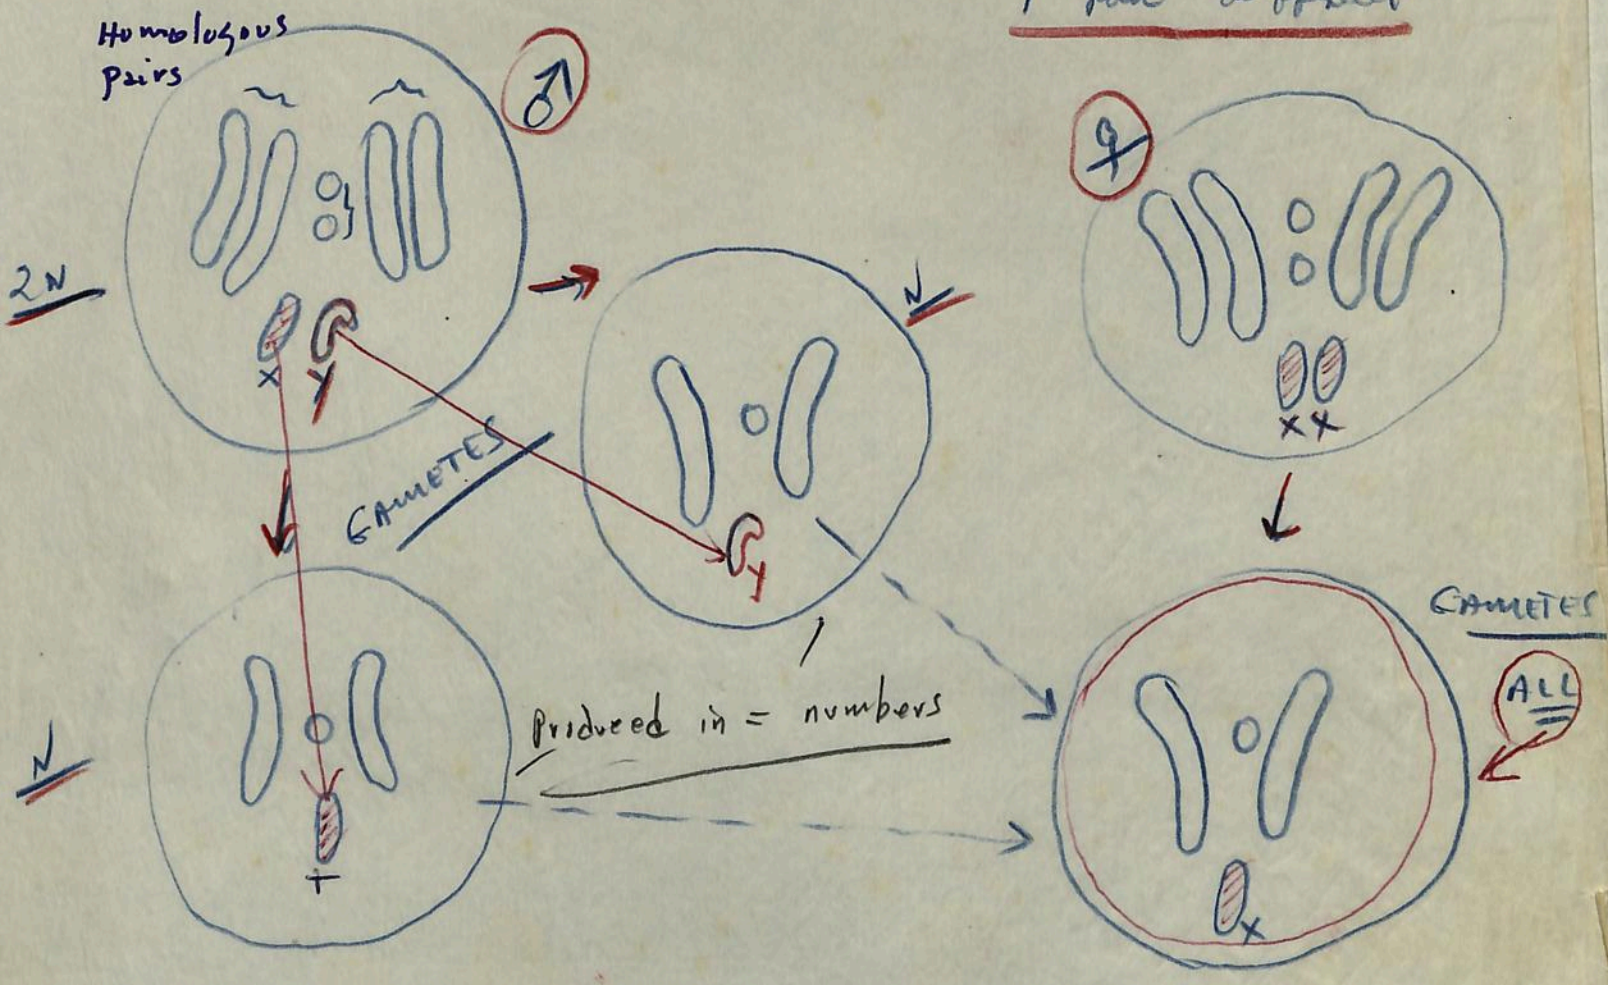 Homologous
pairs
♂
♀
2N
N
X Y
X X
GAMETES
Y
GAMETES
ALL
Produced in = numbers
N
X